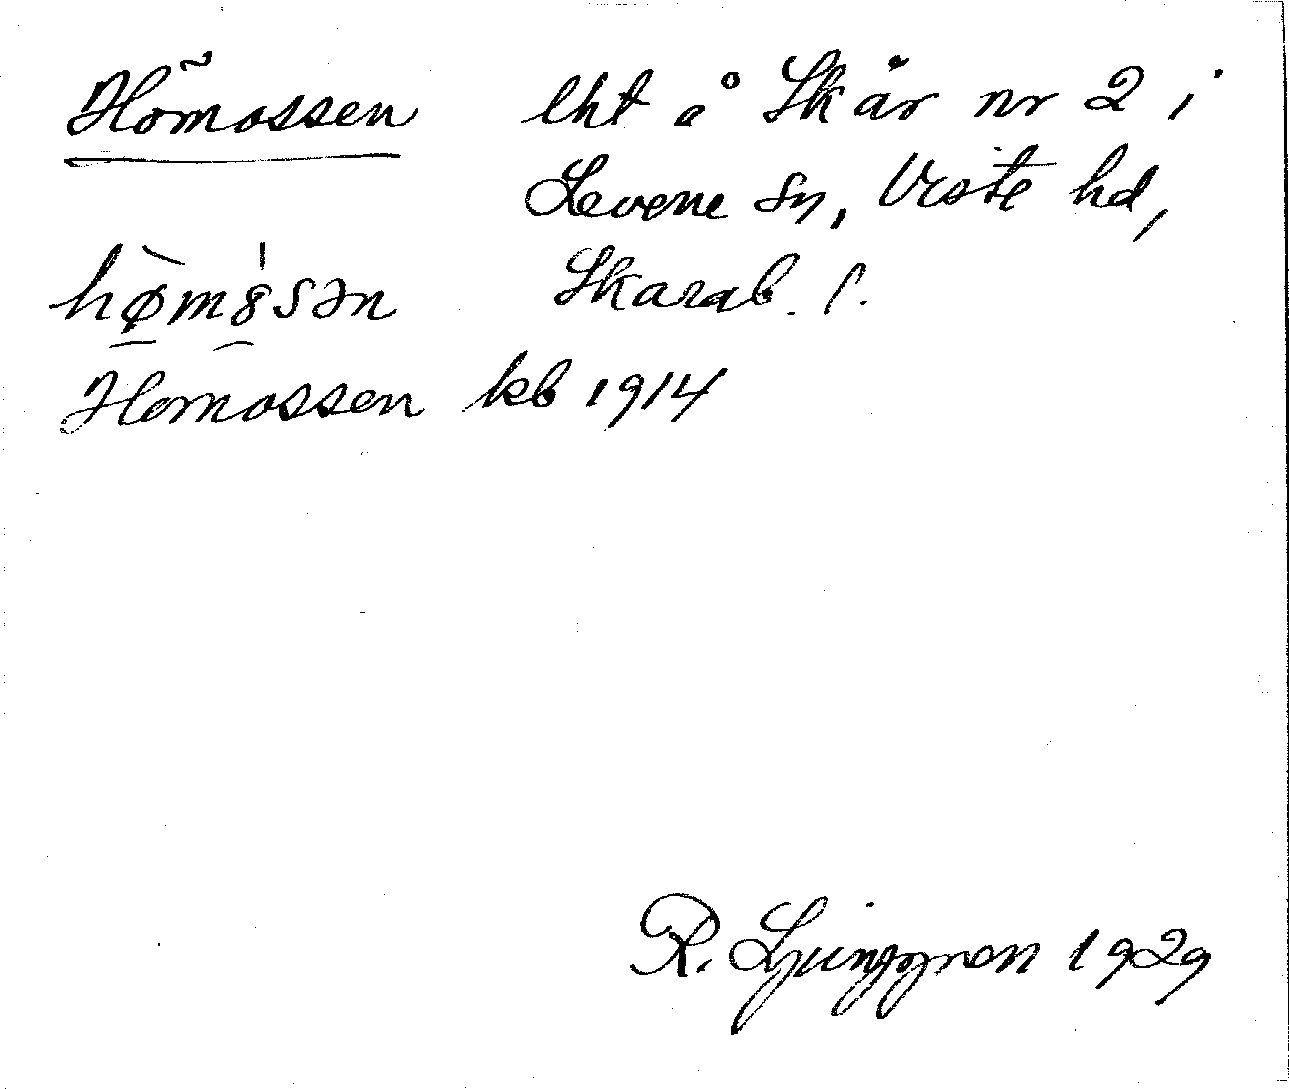 Hömossen lht å Skår nr 2 i
Levene sn, Viste hd,
Skarab. l.
hø̀mˈ8sən
Homossen kb 1914
R. Ljunggren 1929